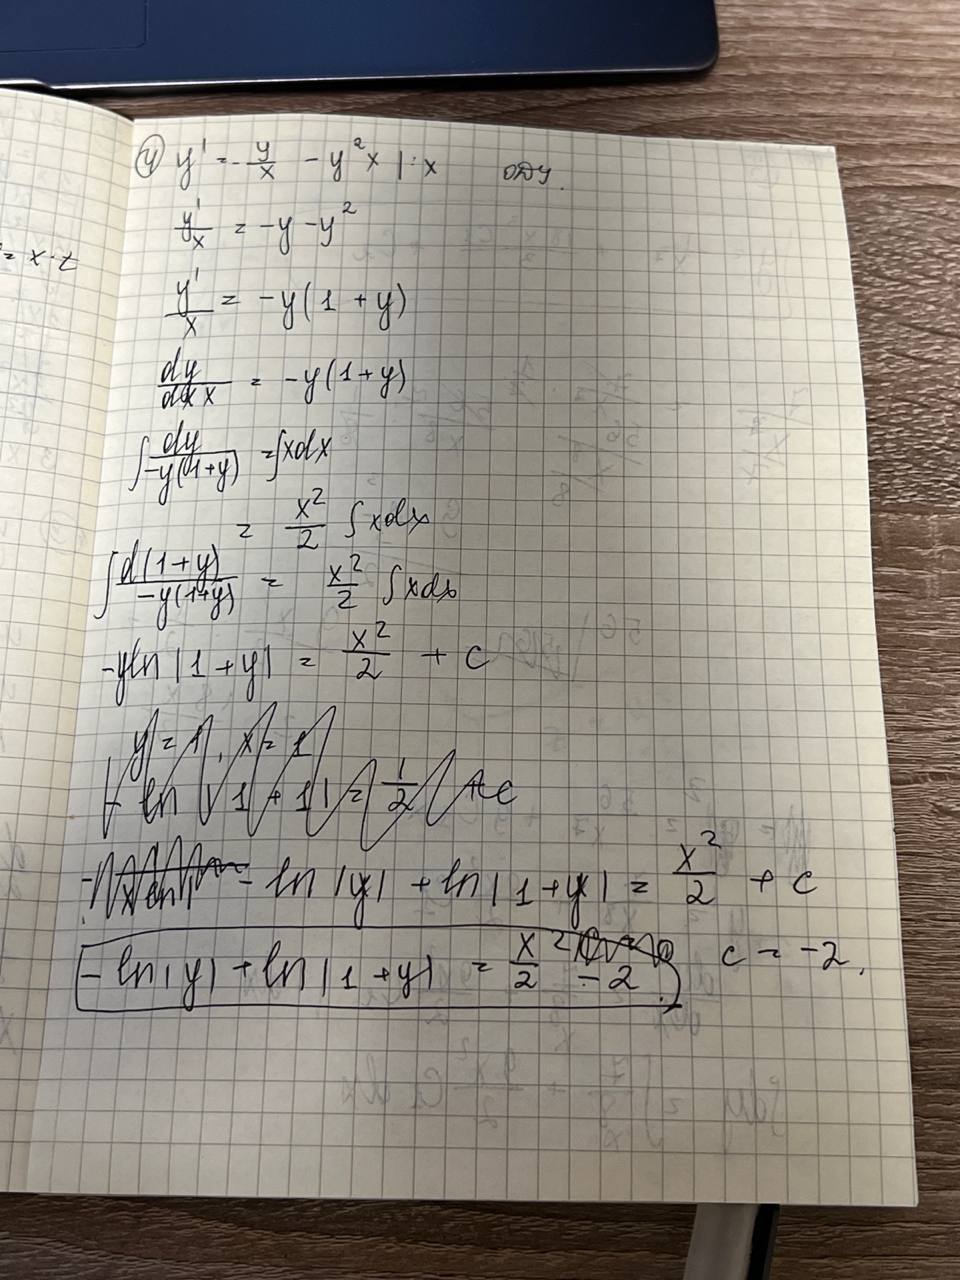 ④ y' = -y/x - y²x | : x ОДУ.
y'/x = -y - y²
y'/x = -y(1 + y)
dy/dx x = -y(1+y)
∫ dy/-y(1+y) = ∫xdx
= x²/2 ∫xdx
∫ d(1+y)/-y(1+y) = x²/2 ∫xdx
-yln |1+y| = x²/2 + c
y = 1, x = 1
- ln |1 + 1| = 1/2 + c
- ln |y| + ln |1+y| = x²/2 + c
- ln|y| + ln |1+y| = x²/2 - 2 c = -2.